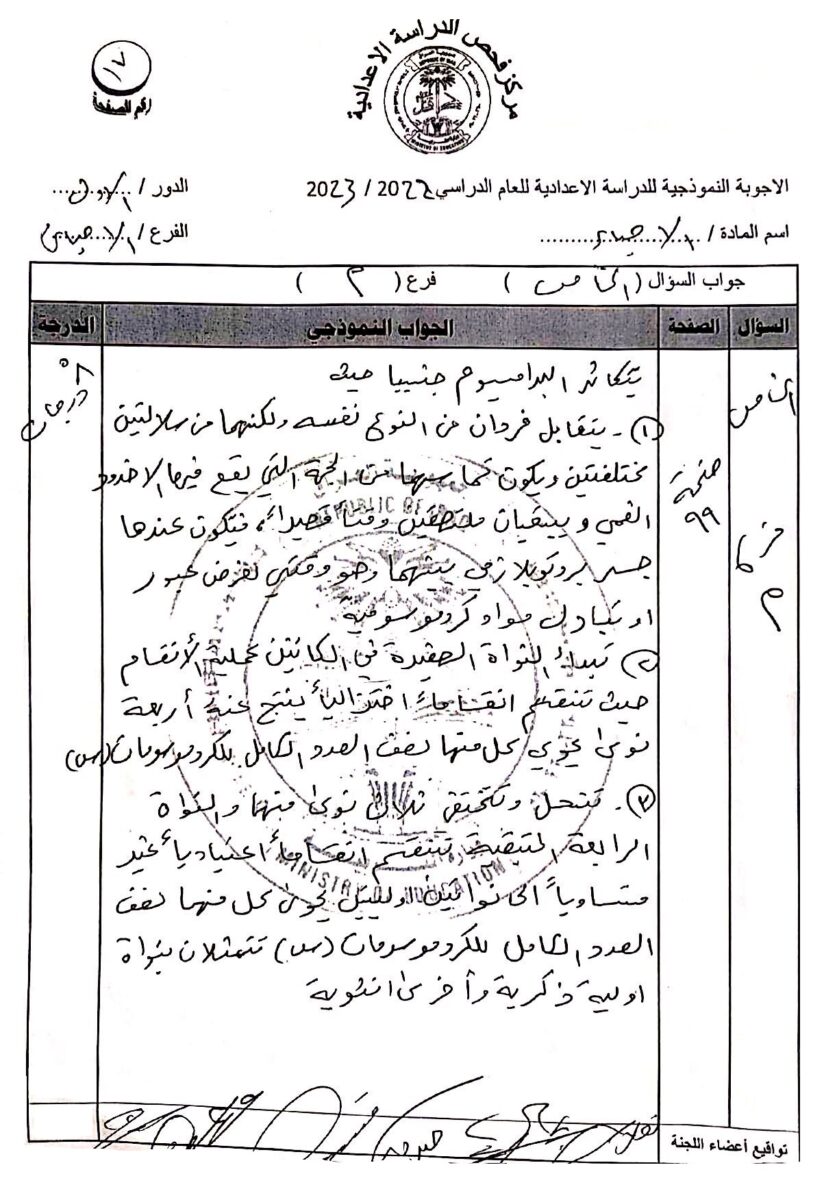 مركز فحص الدراسة الاعدادية
١٧
رقم الصفحة
الاجوبة النموذجية للدراسة الاعدادية للعام الدراسي 2022 / 2023
الدور / الاول
اسم المادة / الاحياء
الفرع / الاحيائي
جواب السؤال ( الخامس ) فرع ( م )
السؤال الصفحة الجواب النموذجي الدرجة
الخامس
فرع
م
صفحة
٩٩
٨
درجات
يتكاثر البراميسيوم جنسيا حيث
١- يتقابل فردان من النوع نفسه ولكنهما من سلالتين
مختلفتين ويكون تماسهما من الجهة التي يقع فيها الاخدود
الفمي ويبقيان ملتصقين وقتاً قصيراً، فيتكون عندها
جسر بروتوبلازمي بينهما وهو وقتي لغرض عبور
او تبادل مواد كروموسومية
٢- تبدأ النواة الصغيرة في الكائنين عملية الأنقسام
حيث تنقسم انقساماً اختزالياً ينتج عنه أربعة
نوى يحوي كل منها نصف العدد الكامل للكروموسومات (س)
٣- تنحل وتختفي ثلاث نوى منهما والنواة
الرابعة المتبقية تنقسم انقساماً اعتيادياً غير
متساوياً الى نواتين اوليتين يحوي كل منهما نصف
العدد الكامل للكروموسومات (س) تتمثلان بنواة
اولية ذكرية وأخرى انثوية
تواقيع أعضاء اللجنة
REPUBLIC OF
MINISTRY OF EDUCATION